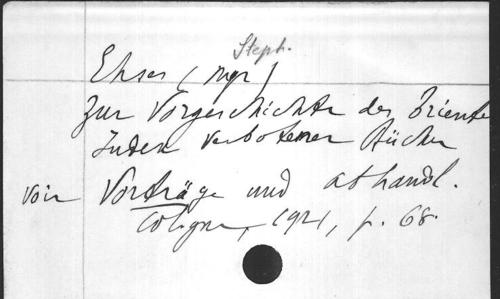 Steph.
Ehses (Mgr)
Zur Vorgeschichte des Trienter
Index verbotener Bücher
voir Vorträge und abhandl.
Cologne, 1921, p. 68.